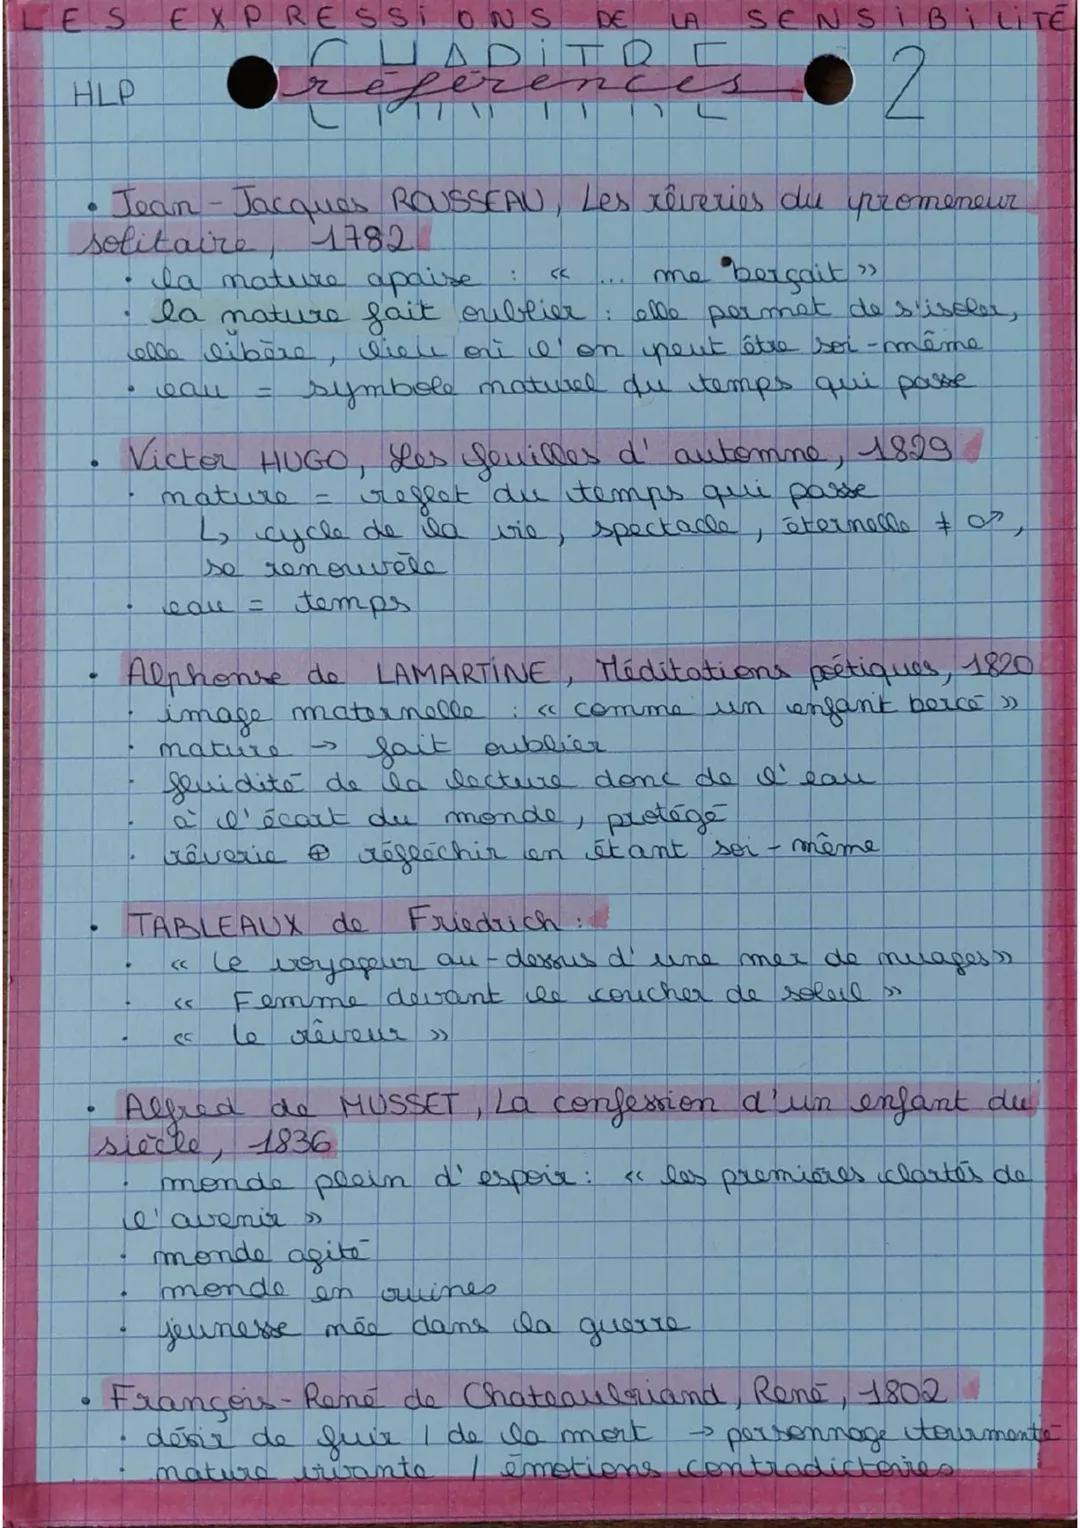 LES EXPRESSIONS DE LA SENSIBILITÉ
CHAPITRE 2
HLP
références
• Jean-Jacques ROUSSEAU, Les rêveries du promeneur
solitaire, 1782
• la nature apaise : « ... me berçait »
• la nature fait oublier : elle permet de s'isoler,
elle libère, lieu où l'on peut être soi-même
• eau = symbole naturel du temps qui passe
• Victor HUGO, Les feuilles d'automne, 1829
• nature = reflet du temps qui passe
↳ cycle de la vie, spectacle, éternelle ≠
se renouvèle
• eau = temps
• Alphonse de LAMARTINE, Méditations poétiques, 1820
• image maternelle : « comme un enfant bercé »
• nature → fait oublier
• fluidité de la lecture donc de l'eau
• à l'écart du monde, protégé
• rêverie ⊕ réfléchir en étant soi-même
• TABLEAUX de Friedrich :
• « Le voyageur au-dessus d'une mer de nuages »
• « Femme devant le coucher de soleil »
• « Le rêveur »
• Alfred de MUSSET, La confession d'un enfant du
siècle, 1836
• monde plein d'espoir : « les premières clartés de
l'avenir »
• monde agité
• monde en ruines
• jeunesse née dans la guerre
• François-René de Chateaubriand, René, 1802
• désir de fuir / de la mort → personnage tourmenté
• nature vivante / émotions contradictoires